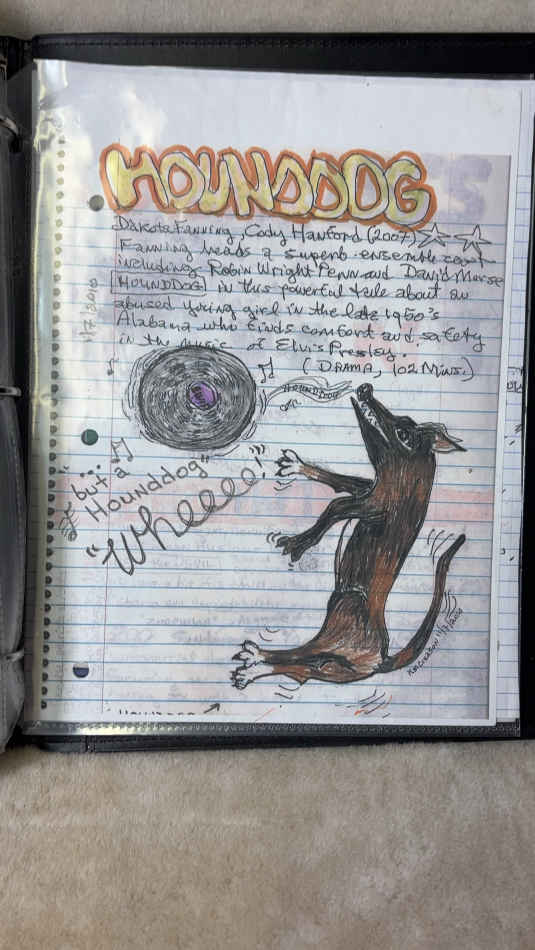 HOUNDDOG
Dakota Fanning, Cody Hanford (2007)
Fanning heads a superb ensemble cast
including Robin Wright Penn and David Morse
HOUNDDOG in this powerful tale about an
abused young girl in the late 1950's
Alabama who finds comfort and safety
in the music of Elvis Presley.
(DRAMA, 102 Mins.)
HOUNDDOG
"... but a
Hounddog"
"Wheeee!"